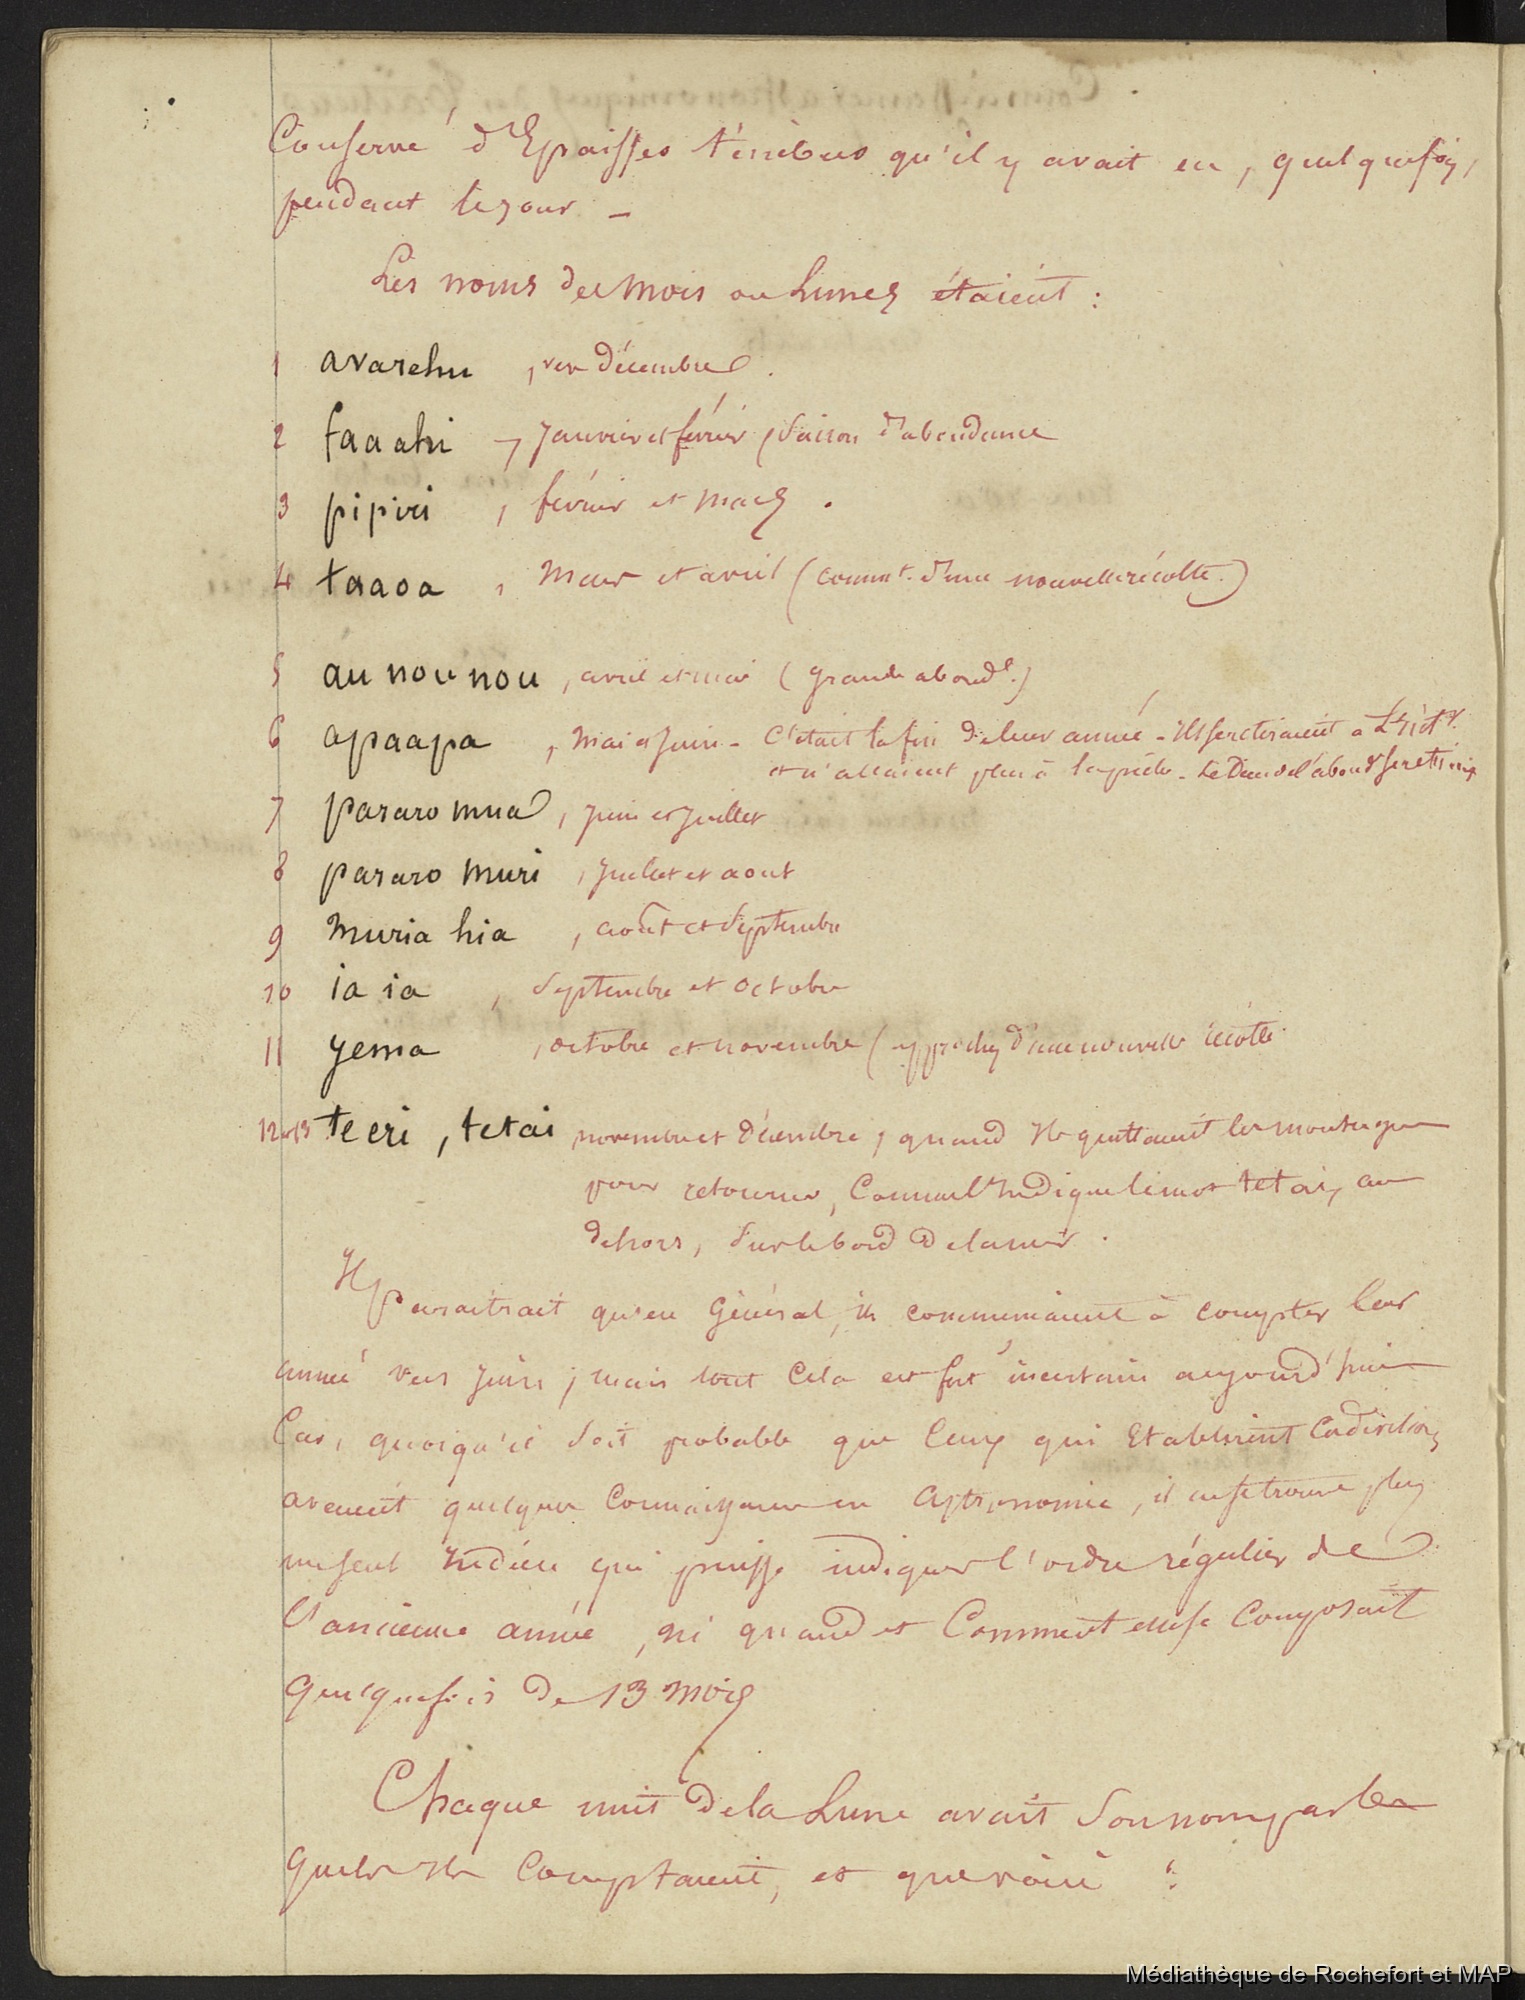 Conservé d'Epaisses ténèbres qu'il y avait eu, quelquefois,
pendant le jour –
Les noms des mois ou Lunes étaient :
1 avarehu , vers décembre .
2 faaahi , Janvier et février , saison d'abondance
3 pipiri , février et mars .
4 taaoa , Mars et avril (comm^t. d'une nouvelle récolte.)
5 au nou nou , avril et mai (grande abond^e.)
6 apaapa , mai et Juin – C'était la fin de leur année – Ils se retiraient à
et n'allaient plus à la pêche – Le Dieu de l'abond^e se retirait
7 pararo mua , Juin et Juillet
8 pararo muri , Juillet et aout
9 muria hia , août et septembre
10 ia ia , septembre et octobre
11 yema , octobre et novembre (approches d'une nouvelle récolte.
12 et 13 te eri , tetai , novembre et décembre , quand ils quittaient les montagnes
pour retourner, comme l'indique le mot tetai, au
dehors, sur le bord de la mer .
Il paraîtrait qu'en Général, ils commençaient à compter leur
année vers Juin ; mais tout cela est fort incertain aujourd'hui
Car, quoiqu'il soit probable que ceux qui Etablirent la division
avaient quelques connaissances en astronomie, il ne se trouve plus
un seul Indien qui puisse indiquer l'ordre régulier de
l'ancienne année , ni quand et Comment elle se composait
quelquefois de 13 mois
Chaque nuit de la Lune avait son nom par les
quels ils comptaient, et que voici :
Médiathèque de Rochefort et MAP